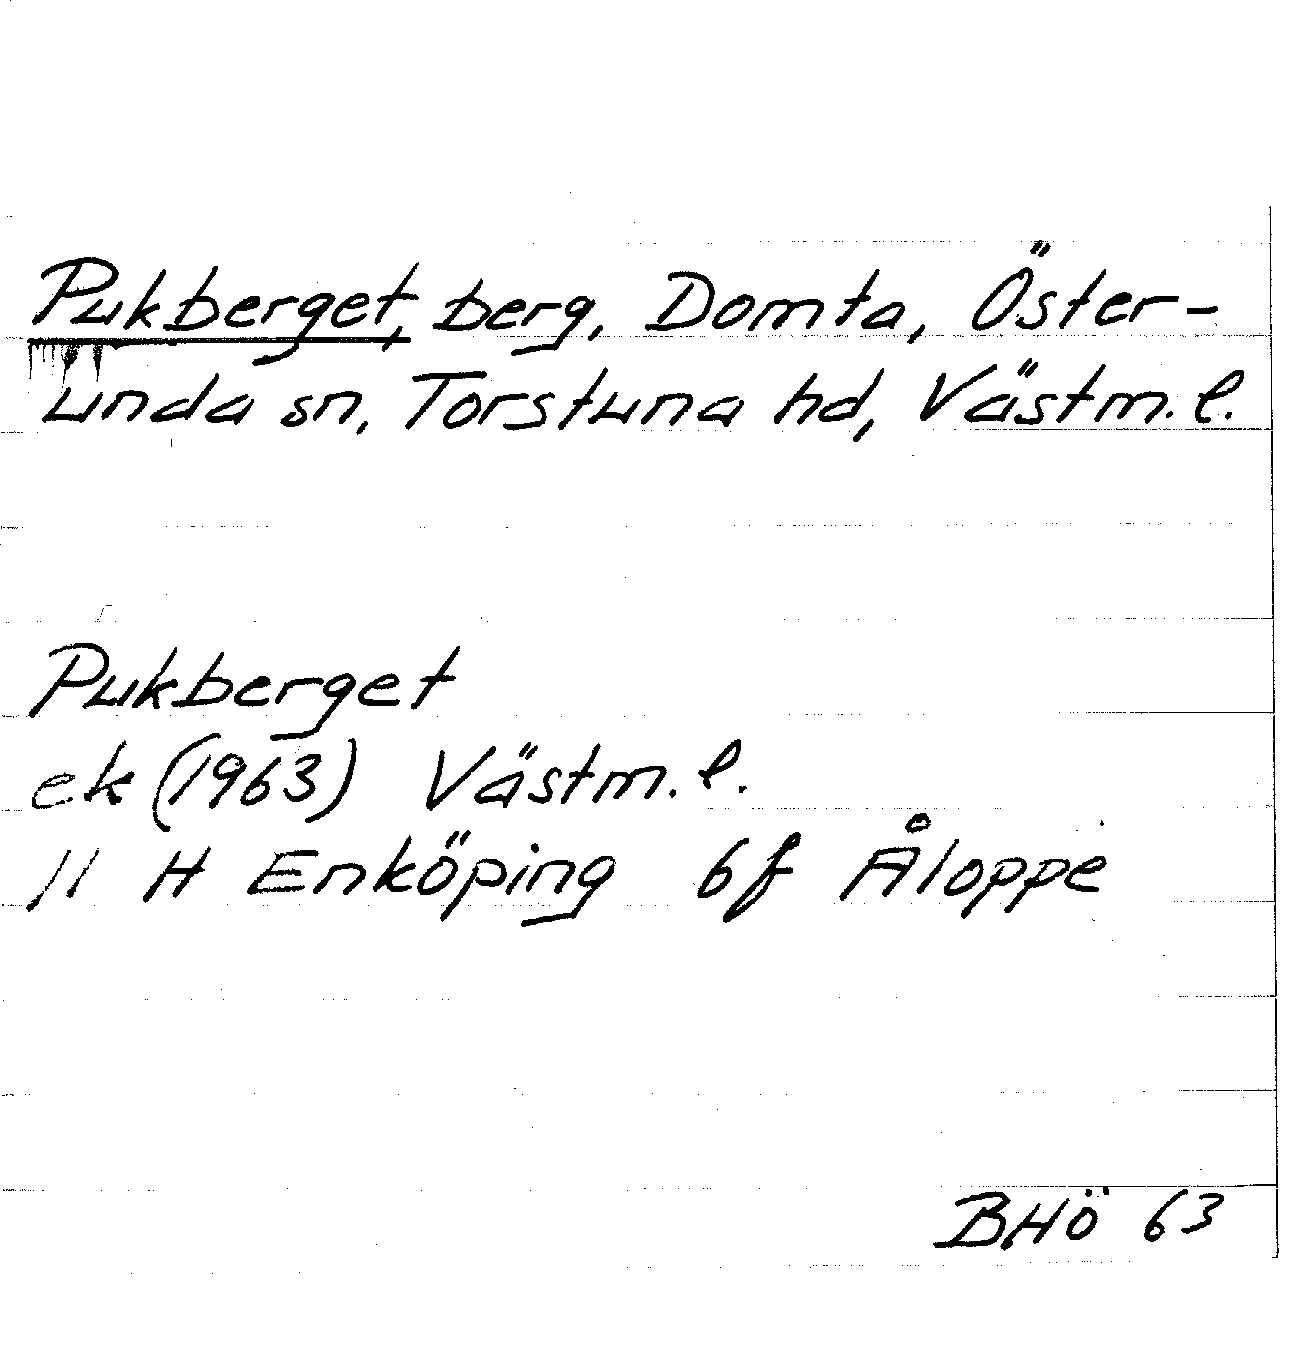 Pukberget, berg, Domta, Öster-
unda sn, Torstuna hd, Västm. l.
Pukberget
ek (1963) Västm. l.
11 H Enköping 6f Åloppe
BHÖ 63